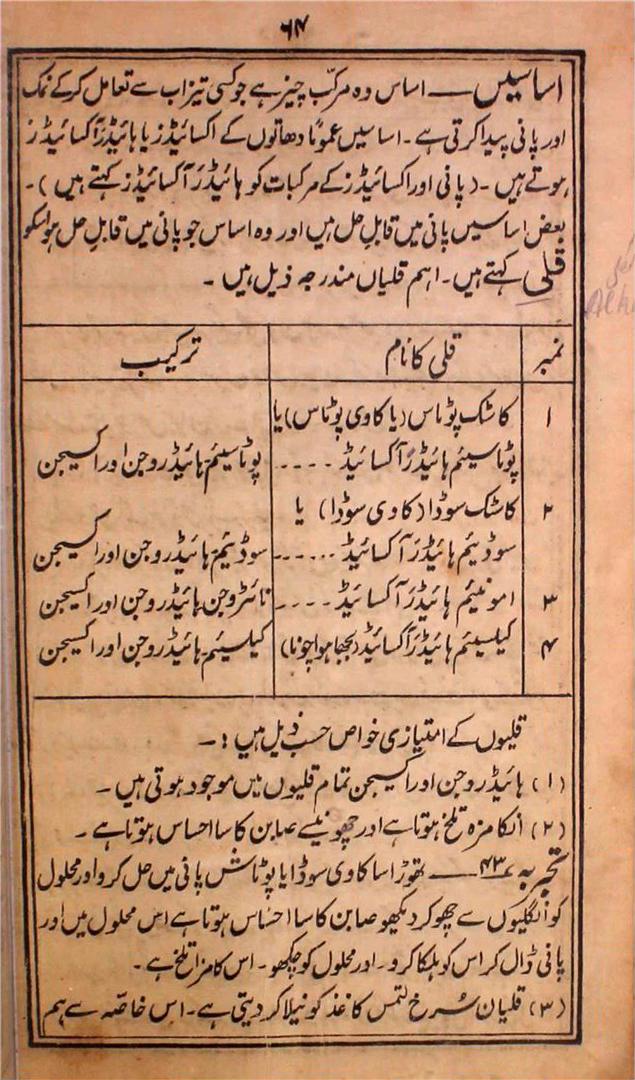 ۶۴
اساسیں — اساس وہ مرکّب چیز ہے جو کسی تیزاب سے تعامل کر کے نمک
اور پانی پیدا کرتی ہے۔ اساسیں عموماً دھاتوں کے اکسائیڈز یا ہائیڈرآکسائیڈز
ہوتے ہیں۔ (پانی اور اکسائیڈز کے مرکبات کو ہائیڈرآکسائیڈز کہتے ہیں)۔
بعض اساسیں پانی میں قابلِ حل ہیں اور وہ اساس جو پانی میں قابلِ حل ہو اسکو
قلی کہتے ہیں۔ اہم قلیاں مندرجہ ذیل ہیں۔
نمبر قلی کا نام ترکیب
۱ کاسٹک پوٹاس (یا کاوی پوٹاس) یا
پوٹاسیئم ہائیڈرآکسائیڈ .... پوٹاسیئم ہائیڈروجن اور اکسیجن
۲ کاسٹک سوڈا (کاوی سوڈا) یا
سوڈیئم ہائیڈرآکسائیڈ ...... سوڈیئم ہائیڈروجن اور اکسیجن
۳ امونیئم ہائیڈرآکسائیڈ .... نائٹروجن ہائیڈروجن اور اکسیجن
۴ کیلسیئم ہائیڈرآکسائیڈ (بجھا ہوا چونا) کیلسیئم ہائیڈروجن اور اکسیجن
قلیوں کے امتیازی خواص حسب ذیل ہیں :۔
(۱) ہائیڈروجن اور اکسیجن تمام قلیوں میں موجود ہوتی ہیں۔
(۲) انکا مزہ تلخ ہوتا ہے اور چھونیسے صابن کا سا احساس ہوتا ہے۔
تجربہ ۴۳ — تھوڑا سا کاوی سوڈا یا پوٹاش پانی میں حل کرو اور محلول
کو انگلیوں سے چھو کر دیکھو صابن کا سا احساس ہوتا ہے اس محلول میں اور
پانی ڈال کر اس کو ہلکا کرو۔ اور محلول کو چکھو۔ اس کا مزا تلخ ہے۔
(۳) قلیان سُرخ لتمس کاغذ کو نیلا کر دیتی ہے۔ اس خاصّہ سے ہم